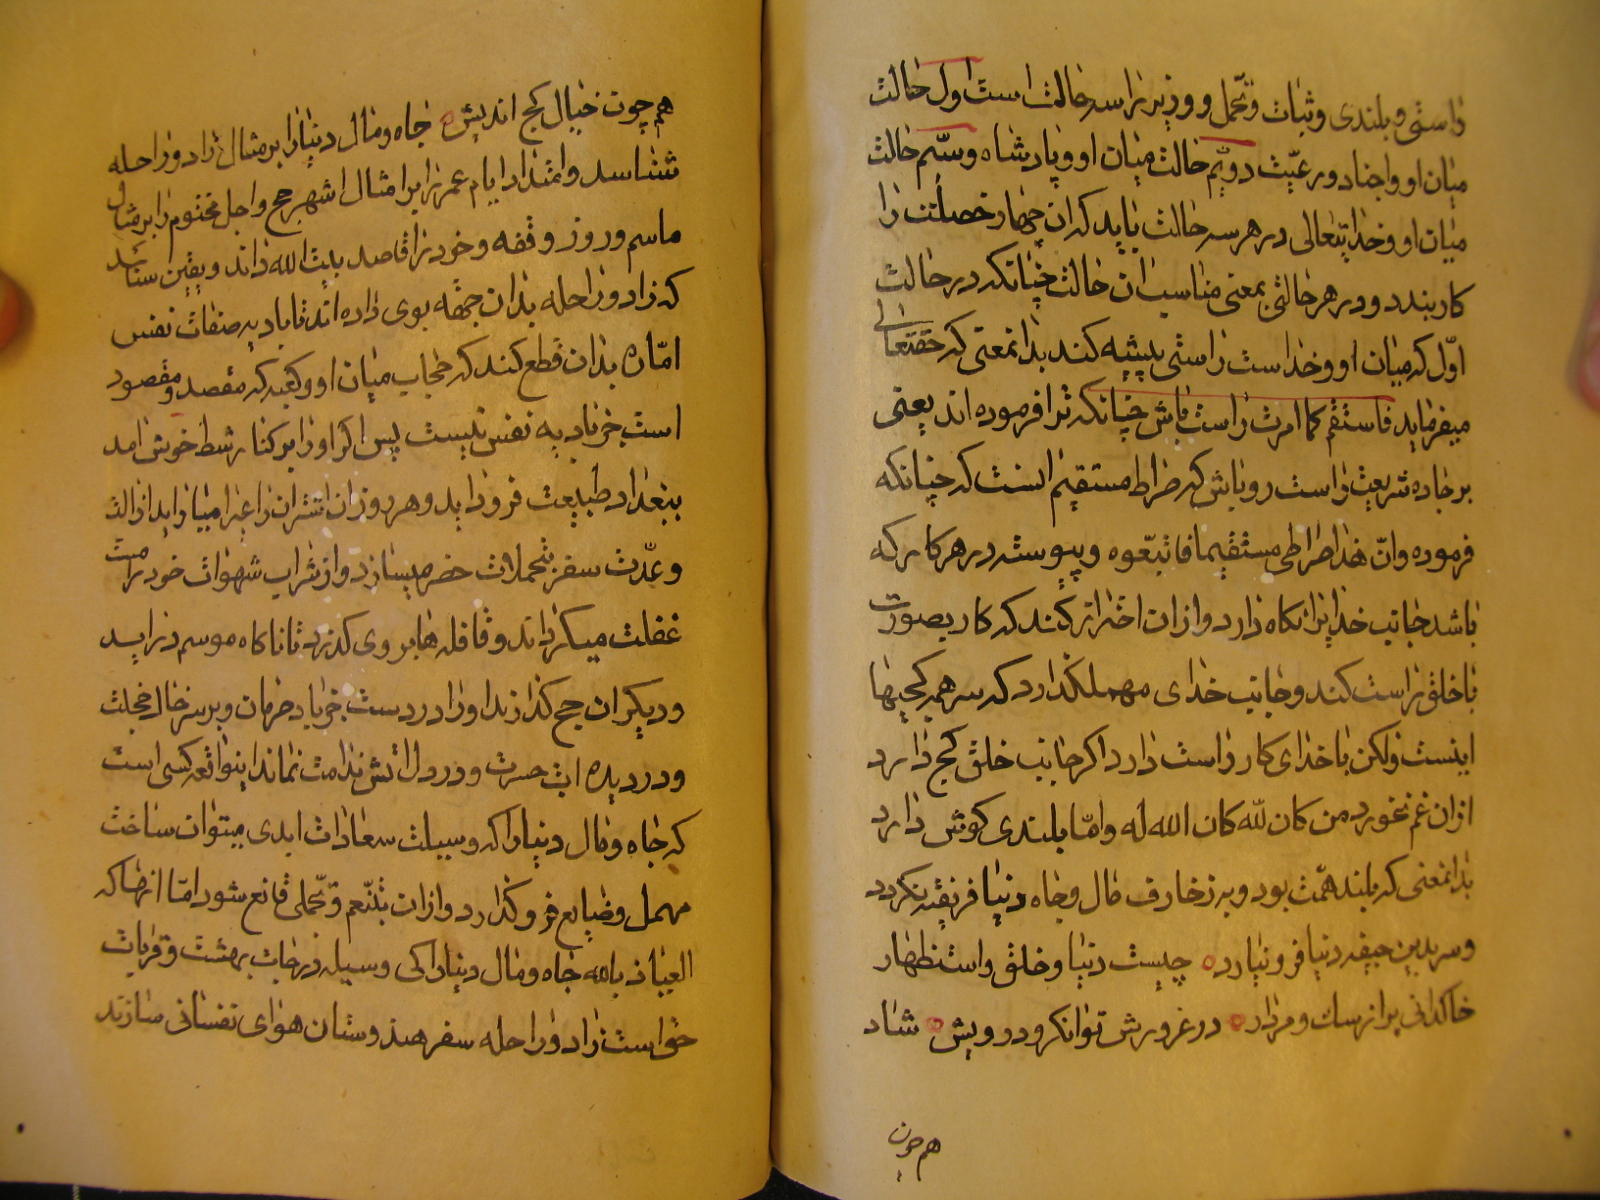 راستی و بلندی و ثبات و تحمل و وزیر را سه حالت است اول حالت
میان او و اجناد و رعیت دویم حالت میان او و پادشاه و سیم حالت
میان او و خدایتعالی در هر سه حالت باید که ان چهار خصلت را
کار بندد و در هر حالتی بمعنی مناسب ان حالت چنانکه در حالت
اول که میان او و خداست راستی پیشه کند بدانمعنی که حقتعالی
میفرماید فاستقم کما امرت راست باش چنانکه ترا فرموده اند یعنی
بر جاده شریعت راست رو باش که صراط مستقیم انست که چنانکه
فرموده وان هذا صراطی مستقیما فاتبعوه و پیوسته در هر کار که
باشد جانب خدایرا نکاه دارد و ازان احتراز کند که کار بصورت
با خلق راست کند و جانب خدای مهمل نکذارد که سر همه کجیها
اینست ولکن با خدای کار راست دارد اکر جانب خلق کج دارد
ازان غم نخورد من کان لله کان الله له واما بلندی کوش دارد
بدانمعنی که بلند همت بود و به زخارف مال و جاه دنیا فریفته نکردد
و سر بدین جیفه دنیا فرو نیارد چیست دنیا و خلق و استظهار
خاکدانی پر از سک و مردار در غرورش توانکر و درویش شاد
هم چون
هم چون خیال کج اندیش جاه و مال دنیا را بر مثال زاد و راحله
شناسد و امتداد ایام عمر را بر امثال اشهر حج و اجل محتوم را بر مثال
ماسم و روز وقفه و خود را قاصد بیت الله داند و یقین شناسد
که زاد و راحله بدان جهة بوی داده اند تا بادیه صفات نفس
اماره بدان قطع کند که حجاب میان او و کعبه که مقصد و مقصود
است جز بادیه نفس نیست پس اکر او را بر کنار شط خوش امد
ببغداد طبیعت فرود اید و هر روز ان اشتران را علف
و عدت سفر بتجملات حضر میسازد و از شراب شهوات خود را مست
غفلت میکرداند و قافله ها بر وی کذرد تا ناکاه موسم دراید
و دیکران حج کذارند او را در دست جز باد حرمان و بر سر خاک خجلت
و در دیده اب حسرت و در دل اتش ندامت نماند اینواقعه کسی است
که جاه و مال دنیا را که وسیلت سعادات ابدی میتوان ساخت
مهمل و ضایع فرو کذارد و ازان بتنعم و تجملی قانع شود اما انها که
العیاذ بالله جاه و مال دنیا را کی وسیله درجات بهشت و قربات
حق است زاد و راحله سفر هندوستان هوای نفسانی سازند